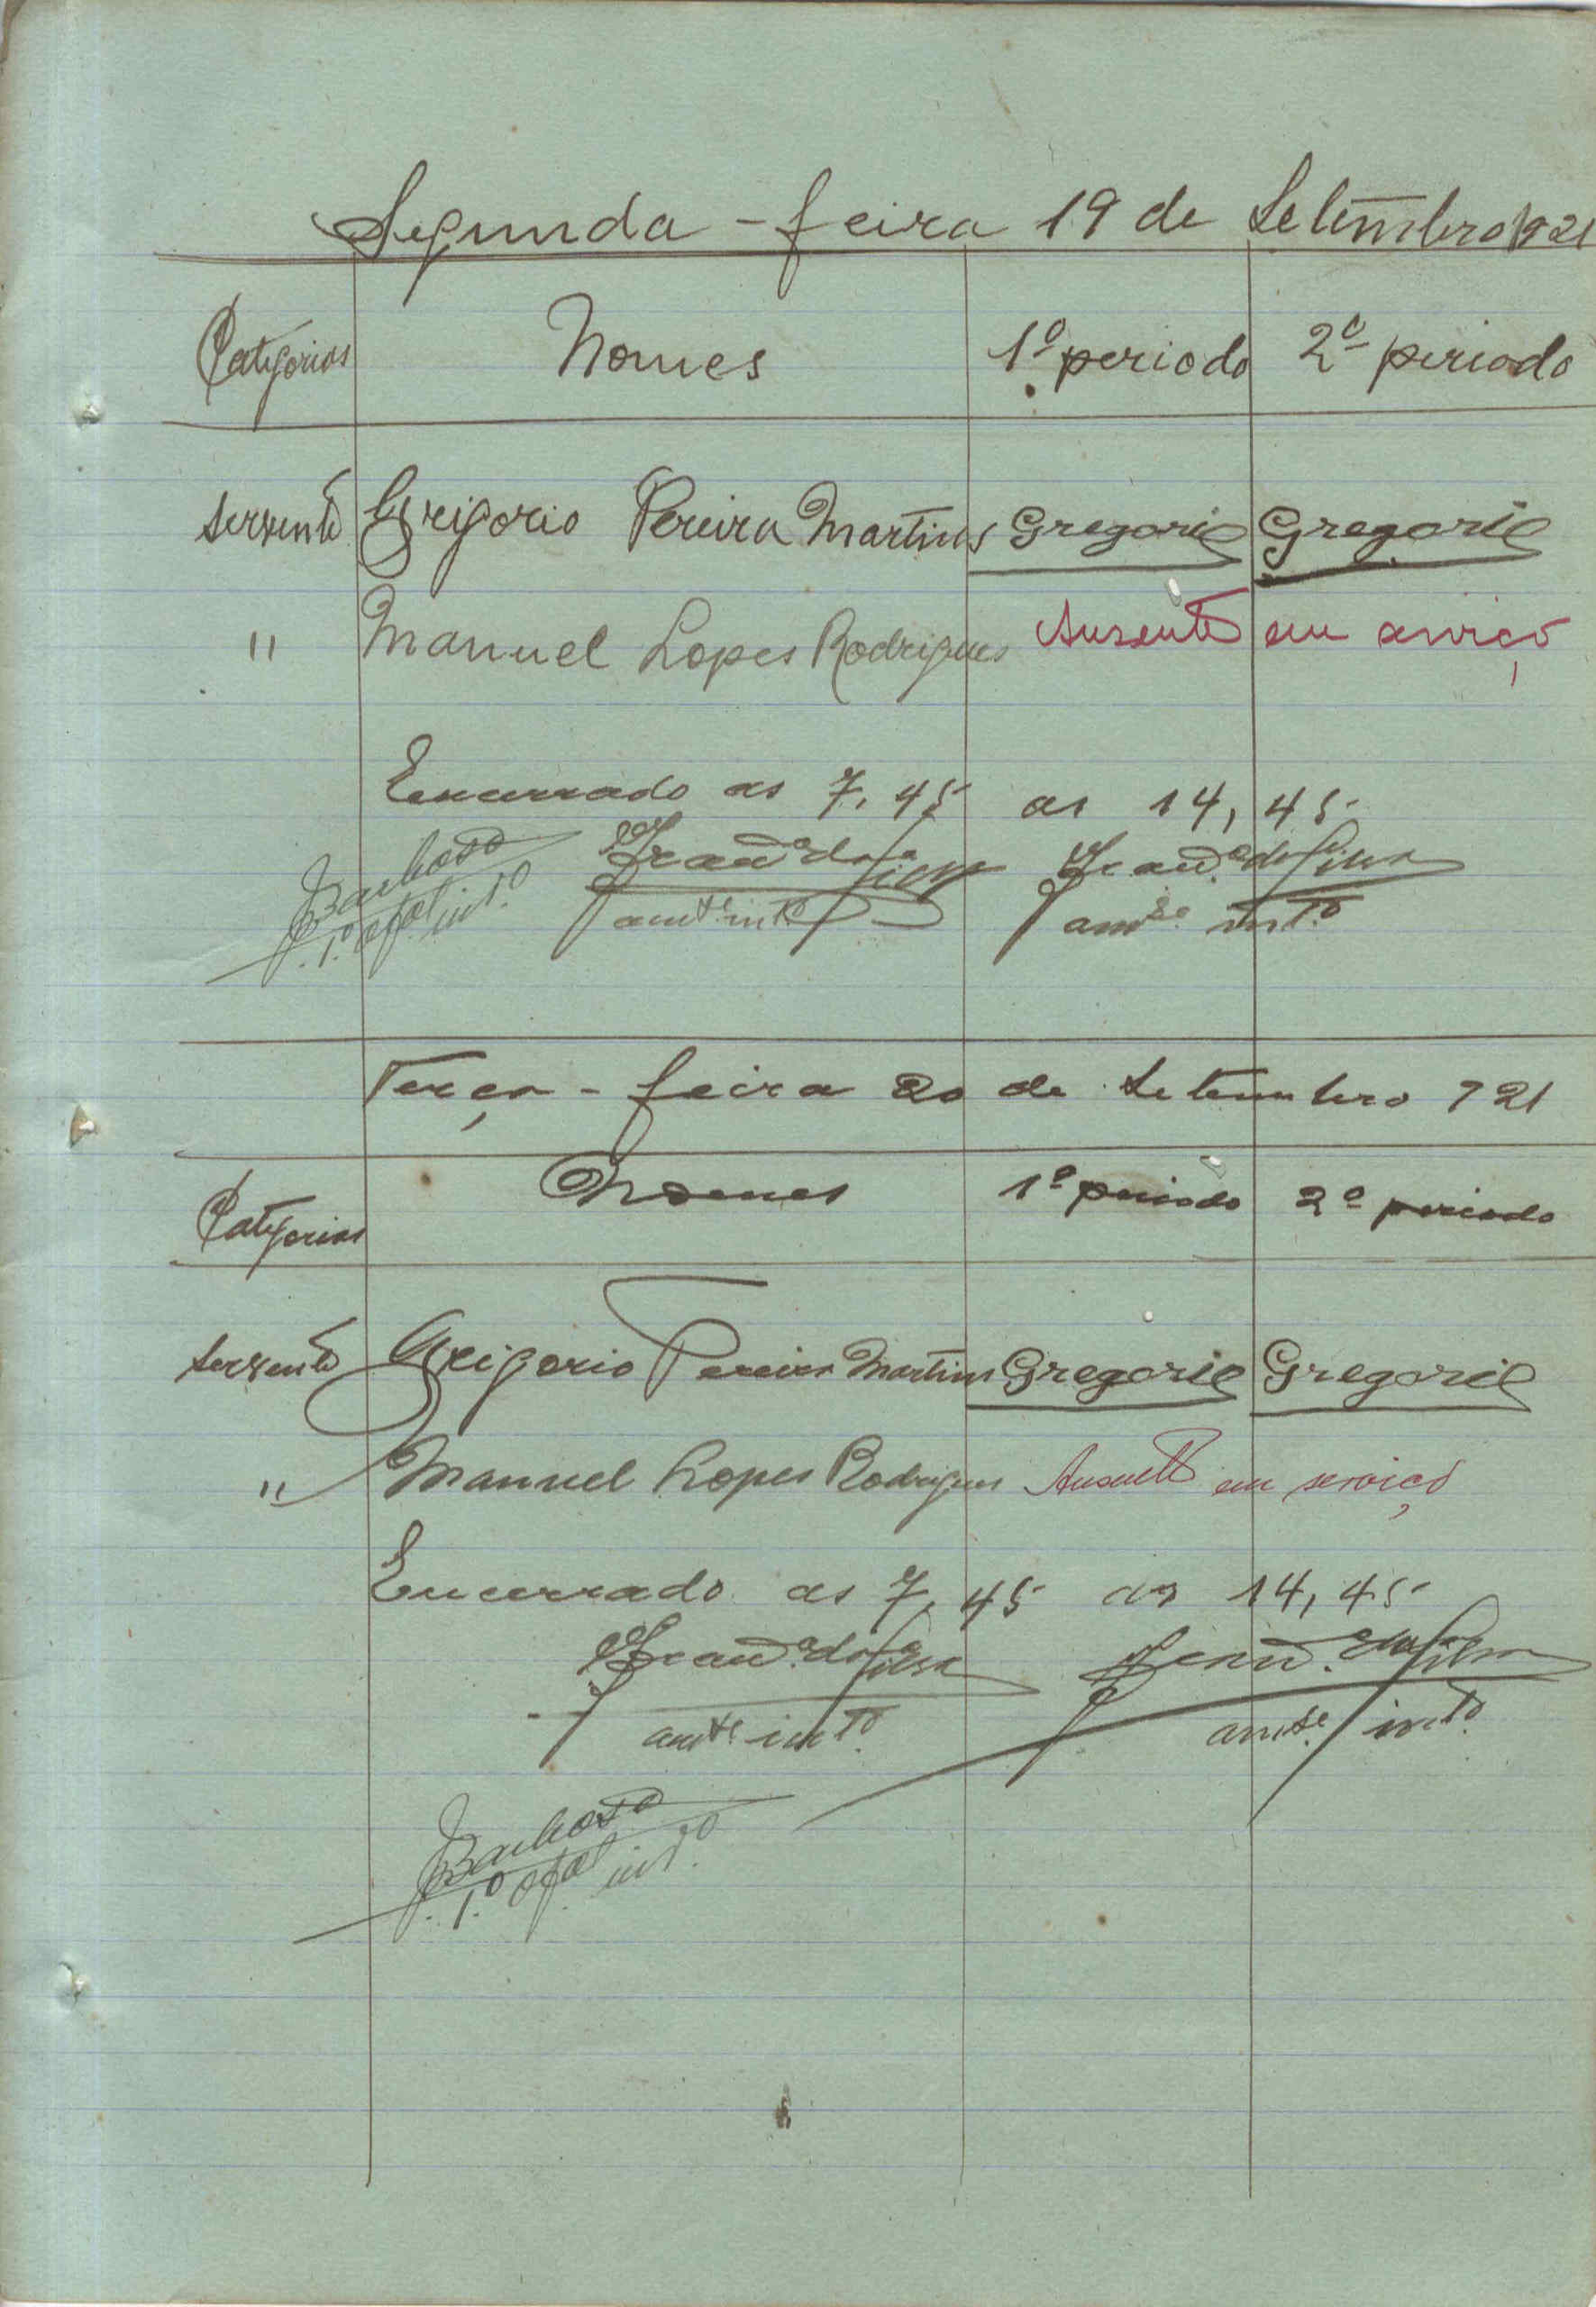 Segunda-feira 19 de Setembro 1921
Categorias Nomes 1º periodo 2º periodo
Servente Grigorio Pereira Martins Gregorio Gregorio
" Manuel Lopes Rodrigues Ausente em serviço
Encerrado as 7,45 as 14,45
Barbosa
1.º ofal int.º
amte intº amte intº
Terça-feira 20 de Setembro 921
Categorias Nomes 1º periodo 2º periodo
Servente Grigorio Pereira Martins Gregorio Gregorio
" Manuel Lopes Rodrigues Ausente em serviço
Encerrado as 7,45 as 14,45
amte intº amte intº
Barbosa
1.º ofal int.º